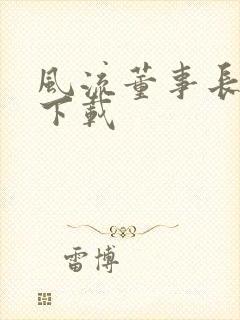 風流董事長
下載
雷博